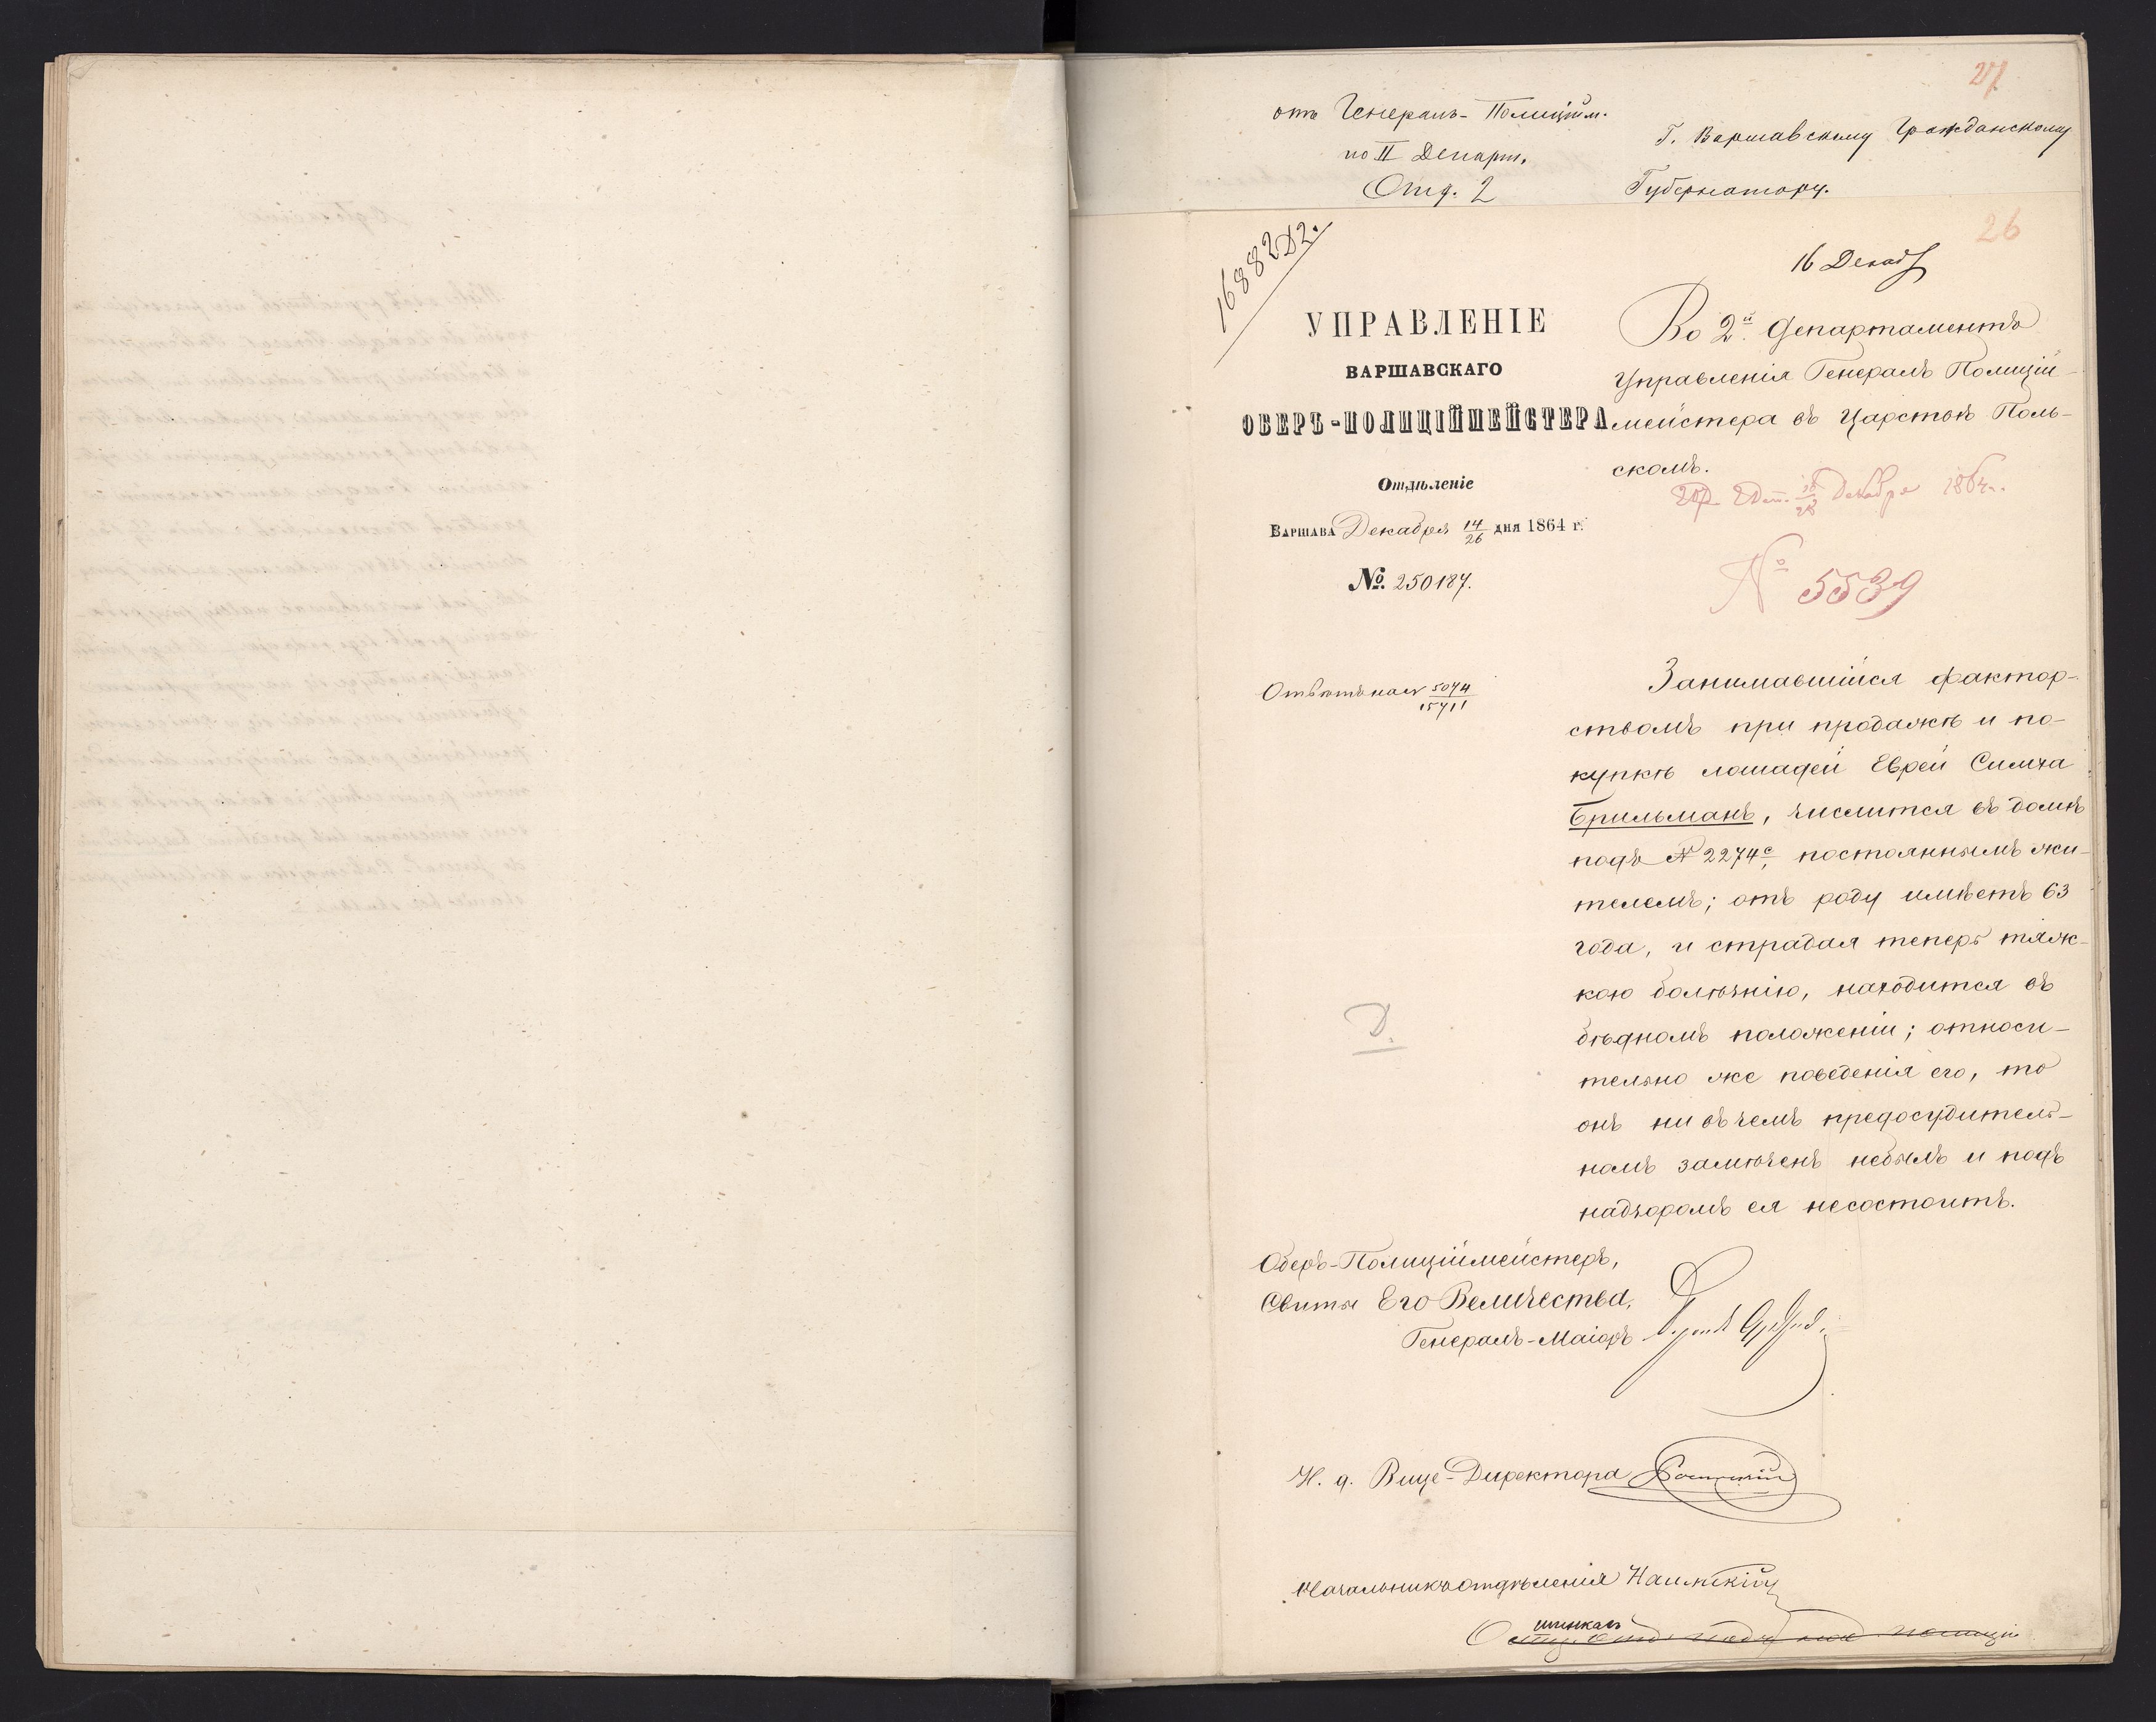 27
отъ Генералъ-Полиційм.
по II Департ.
Отд. 2
Г. Варшавскому Гражданскому
Губернатору.
26
16882 Д2.
16 Декаб
УПРАВЛЕНІЕ
ВАРШАВСКАГО
ОБЕРЪ-ПОЛИЦІЙМЕЙСТЕРА
Отдѣленіе
ВАРШАВА Декабря 14/26 дня 1864 г.
№. 250187.
Во 2й Департаментъ
Управленія Генералъ Полицій-
мейстера въ Царствѣ Поль-
скомъ.
16/28 Декабря 1864 г.
№ 5539
Отвѣтъ на № 5074/15711
Занимавшійся фактор-
ствомъ при продажѣ и по-
купкѣ лошадей Еврей Симха
Брильманъ, числится въ домѣ
подъ № 2274с, постояннымъ жи-
телемъ; отъ роду имѣетъ 63
года, и страдая теперь тяж-
кою болѣзнію, находится въ
бѣдномъ положеніи; относи-
тельно же поведенія его, то
онъ ни въ чемъ предосудитель-
номъ замѣченъ небылъ и подъ
надзоромъ ея несостоитъ.
Д.
Оберъ-Полиціймейстеръ,
Свиты Его Величества,
Генералъ-Маіоръ
И. д. Вице-Директора
Начальникъ отдѣленія